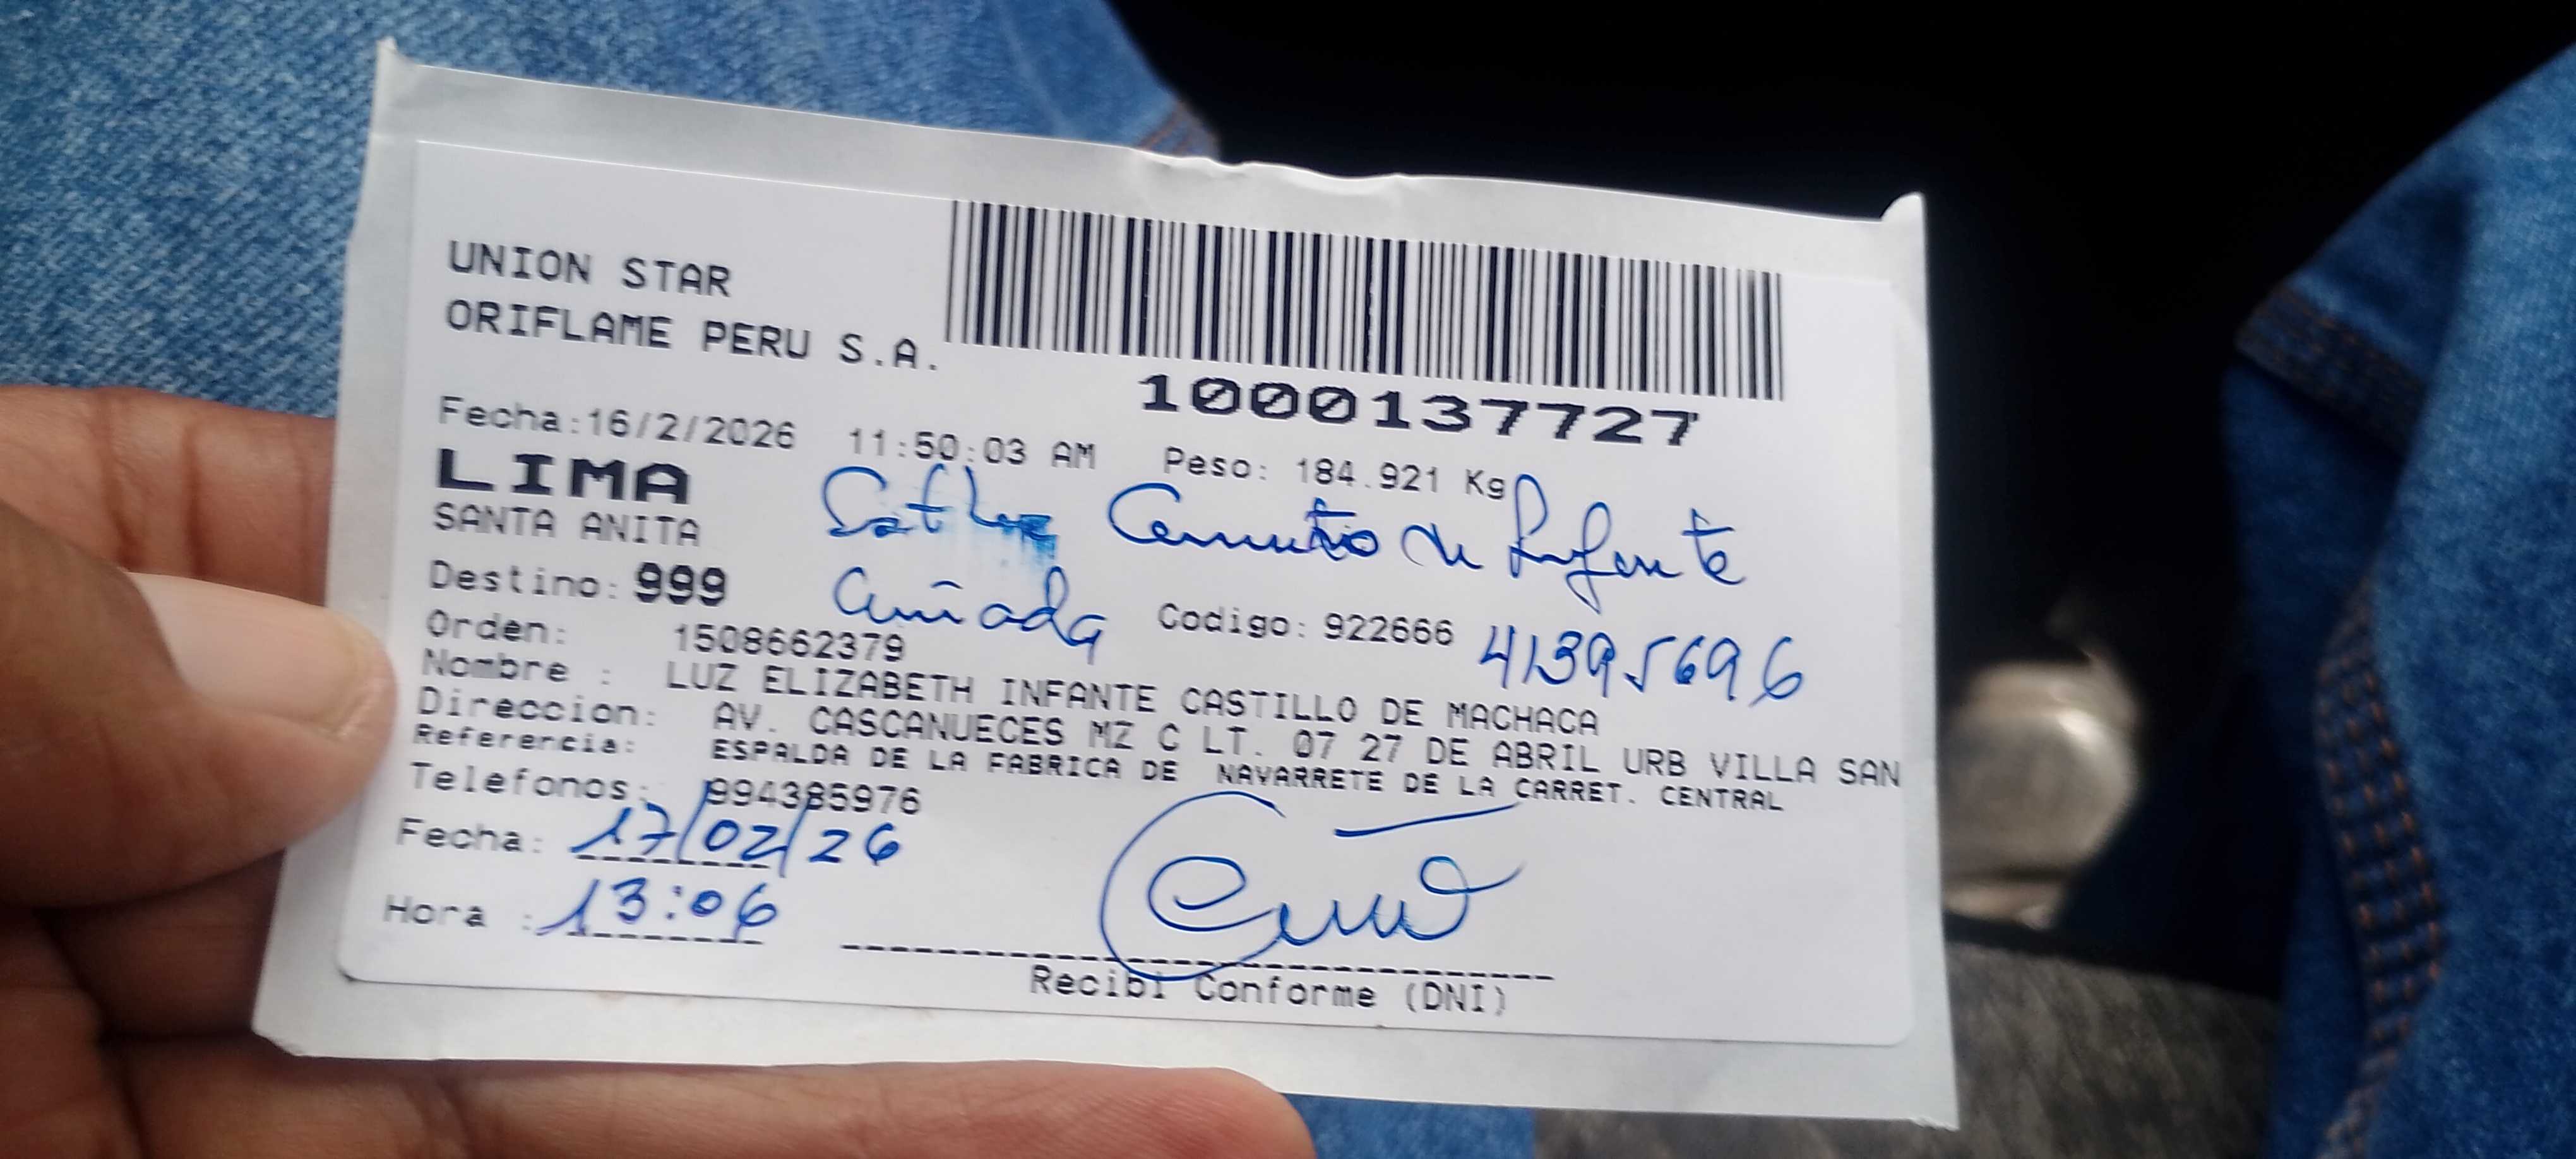 UNION STAR
ORIFLAME PERU S.A.
1000137727
Fecha:16/2/2026 11:50:03 AM Peso: 184.921 Kg
LIMA
SANTA ANITA
de Infante
Destino: 999
Cuñada
Codigo: 922666
41395696
Orden: 1508662379
Nombre : LUZ ELIZABETH INFANTE CASTILLO DE MACHACA
Direccion: AV. CASCANUECES MZ C LT. 07 27 DE ABRIL URB VILLA SAN
Referencia: ESPALDA DE LA FABRICA DE NAVARRETE DE LA CARRET. CENTRAL
Telefonos: 994385976
Fecha: 17/02/26
Hora : 13:06
Recibi Conforme (DNI)